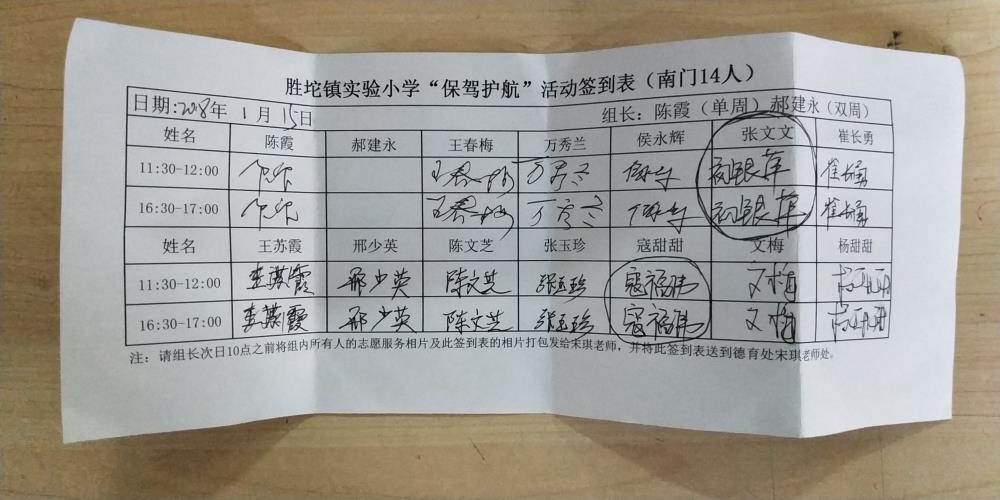 胜坨镇实验小学“保驾护航”活动签到表（南门14人）
日期:2018年 1月 15日 组长：陈霞（单周）郝建永（双周）
姓名 陈霞 郝建永 王春梅 万秀兰 侯永辉 张文文 崔长勇
11:30-12:00 王春梅 万秀兰 崔长勇
16:30-17:00 王春梅 万秀兰 崔长勇
姓名 王苏霞 邢少英 陈文芝 张玉珍 寇甜甜 文梅 杨甜甜
11:30-12:00 邢少英 陈文芝 张玉珍 寇福伟 文梅
16:30-17:00 邢少英 陈文芝 张玉珍 寇福伟 文梅
注：请组长次日10点之前将组内所有人的志愿服务相片及此签到表的相片打包发给宋琪老师，并将此签到表送到德育处宋琪老师处。